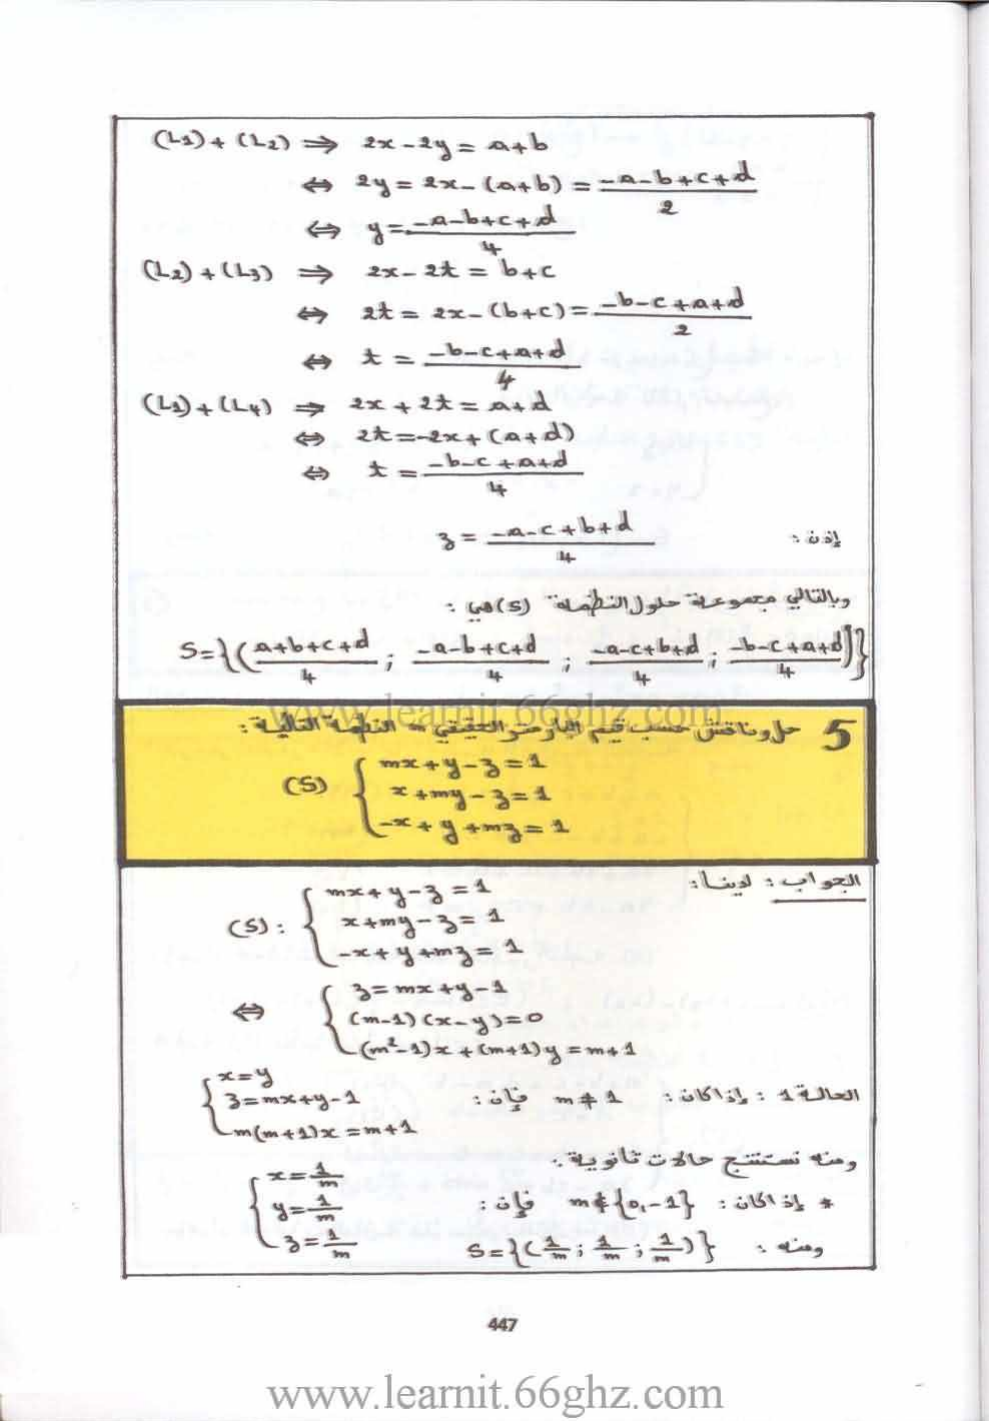 (L1)+(L2) ⇒ 2x-2y = a+b
⇔ 2y = 2x-(a+b) = (-a-b+c+d)/2
⇔ y = (-a-b+c+d)/4
(L2)+(L3) ⇒ 2x-2t = b+c
⇔ 2t = 2x-(b+c) = (-b-c+a+d)/2
⇔ t = (-b-c+a+d)/4
(L1)+(L4) ⇒ 2x+2t = a+d
⇔ 2t = -2x+(a+d)
⇔ t = (-b-c+a+d)/4
إذن : z = (-a-c+b+d)/4
وبالتالي مجموعة حلول النظمة (S) هي :
S={((a+b+c+d)/4 ; (-a-b+c+d)/4 ; (-a-c+b+d)/4 ; (-b-c+a+d)/4)}
www.learnit.66ghz.com
5 حل وناقش حسب قيم البارامتر الحقيقي m النظمة التالية :
mx+y-z=1
(S) { x+my-z=1
-x+y+mz=1
الجواب : لدينا :
mx+y-z=1
(S) : { x+my-z=1
-x+y+mz=1
z=mx+y-1
⇔ { (m-1)(x-y)=0
(m²-1)x+(m+1)y=m+1
الحالة 1 : إذا كان : m≠1 فإن :
x=y
z=mx+y-1
m(m+1)x=m+1
ومنه نستنتج حالات ثانوية :
* إذا كان : m∉{0,-1} فإن :
x=1/m
y=1/m
z=1/m
ومنه : S={(1/m ; 1/m ; 1/m)}
447
www.learnit.66ghz.com